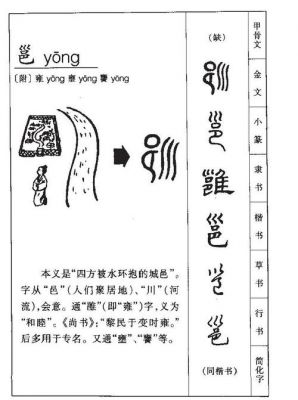 邕 yōng
〔附〕雍 yōng 壅 yōng 饔 yōng
本义是“四方被水环抱的城邑”。
字从“邑”(人们聚居地)、“川”(河
流),会意。通“雝”(即“雍”)字,义为
“和睦”。《尚书》:“黎民于变时雍。”
后多用于专名。又通“壅”、“饔”等。
(缺) 甲骨文
邕 金文
邕 小篆
雝 隶书
邕 楷书
邕 草书
邕 行书
(同楷书) 简化字